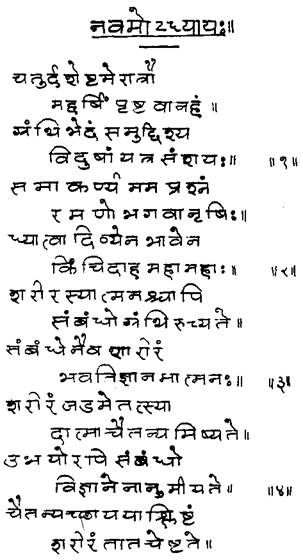 नवमोऽध्यायः॥
चतुर्दशेष्टमे रात्रौ
महर्षिं पृष्टवानहं।
ग्रंथिभेदं समुद्दिश्य
विदुषां यत्र संशयः॥ ॥१॥
तमाकर्ण्य मम प्रश्नं
रमणो भगवानृषिः॥
ध्यात्वा दिव्येन भावेन
किंचिदाह महामहाः॥ ॥२॥
शरीरस्यात्मनश्चापि
संबंधो ग्रंथिरुच्यते॥
संबंधेनैव शारीरं
भवति ज्ञानमात्मनः॥ ॥३॥
शरीरं जडमेतत्स्या
दात्मा चैतन्यमिष्यते॥
उभयोरपि संबंधो
विज्ञानेनानुमीयते॥ ॥४॥
चैतन्यच्छाययाश्लिष्टं
शरीरं तात चेष्टते॥